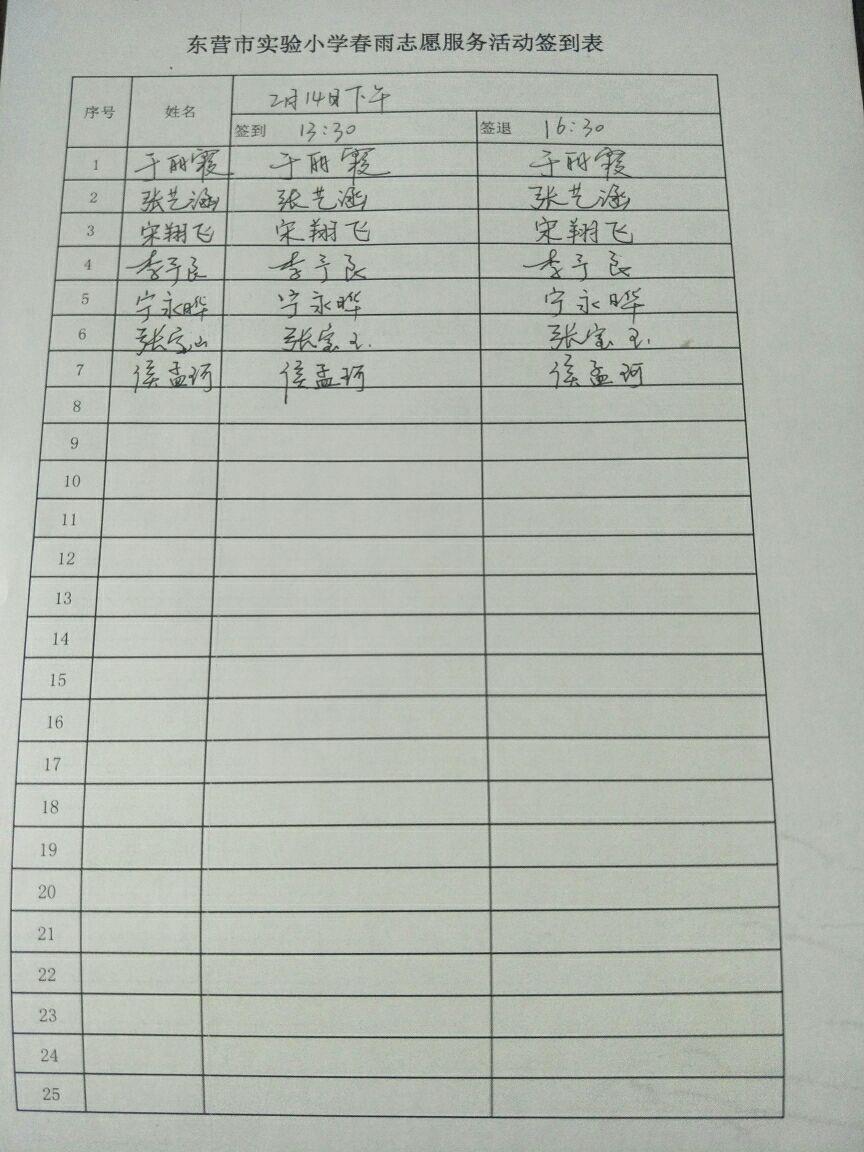 东营市实验小学春雨志愿服务活动签到表
序号 姓名 2月14日下午
签到 13:30 签退 16:30
1 于丽霞 于丽霞 于丽霞
2 张艺涵 张艺涵 张艺涵
3 宋翔飞 宋翔飞 宋翔飞
4 李予良 李予良 李予良
5 宁永晔 宁永晔 宁永晔
6 张宝山 张宝玉 张宝玉
7 侯孟珂 侯孟珂 侯孟珂
8
9
10
11
12
13
14
15
16
17
18
19
20
21
22
23
24
25